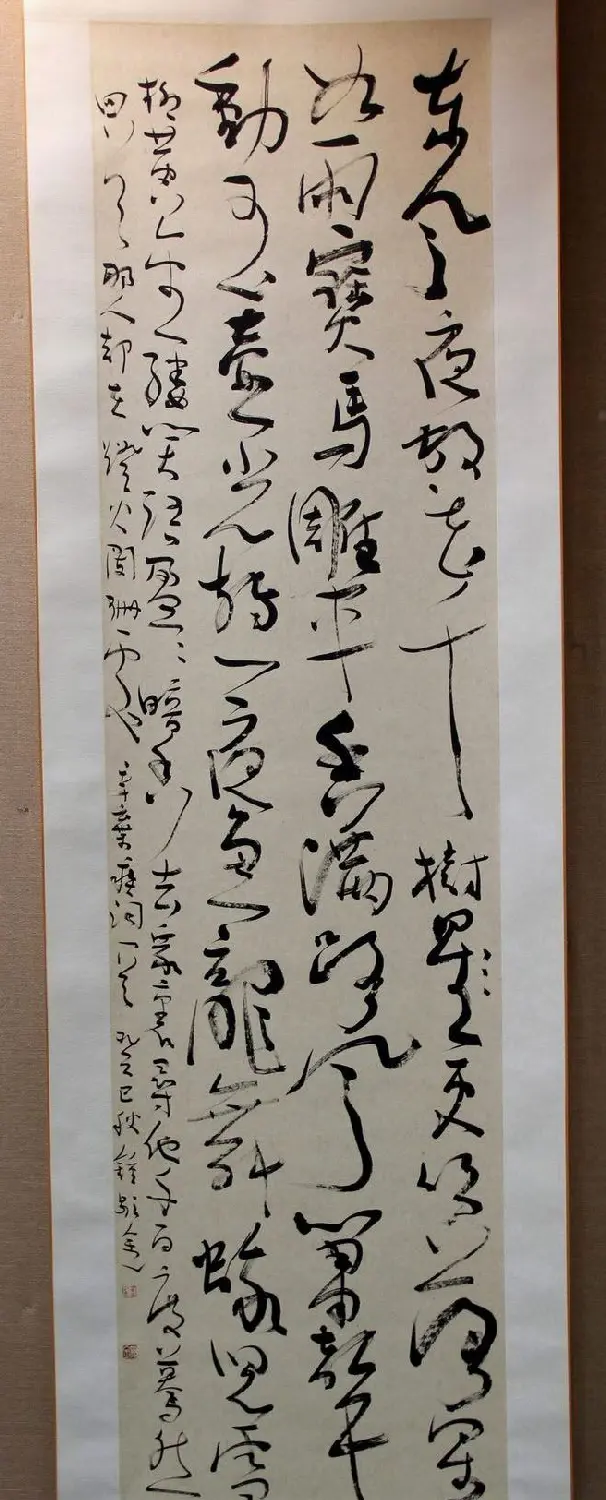 東風夜放花千樹星更吹落星
如雨寶馬雕車香滿路鳳簫聲
動玉壺光轉一夜魚龍舞蛾兒雪
柳黄金縷笑語盈盈暗香去衆裏尋他千百度驀然
回首那人却在燈火闌珊處 辛棄疾詞一首 巳秋